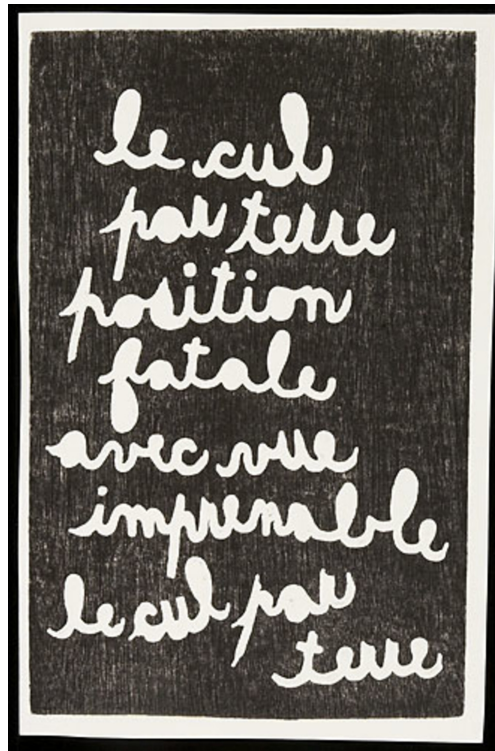 le cul
par terre
position
fatale
avec vue
imprenable
le cul par
terre